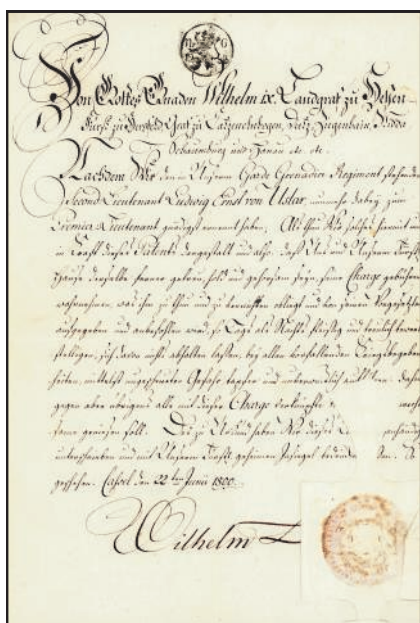 Von Gottes Gnaden Wilhelm IX. Landgraf zu Hessen
Fürst zu Hersfeld, Graf zu Catzenelnbogen, Dietz, Ziegenhain, Nidda
Schaumburg und Hanau etc. etc.
Nachdem Wir den in Unserm Garde Grenadier Regiment stehenden
Second Lieutenant Ludwig Ernst von Uslar, nunmehr dahin zum
Premier Lieutenant gnädigst ernannt haben; Als thun Wir solches hiermit und
in Krafft dieses Patents dergestalt und also, daß Uns und Unserm Fürstl.
Hause derselbe ferner getreu, hold und gehorsam seyn, seine Charge gebührend
wahrnehmen, was ihm zu thun und zu verrichten obliegt und von seinen Vorgesetzten
aufgegeben und anbefohlen wird, es Tags als Nachts fleißig und
sich davon nichts abhalten lassen, bey allen vorfallenden Kriegsbegeben
heiten, Gefahr tapfer und
gegen aber übrigens alle mit dieser Charge verknüpfte
geniesen soll. Des zu Urkund haben Wir dieses
unterschrieben und mit Unserm Fürstl. geheimen Insiegel bedrucken
geschehen. Cassel den 22ten Junii 1800.
Wilhelm L